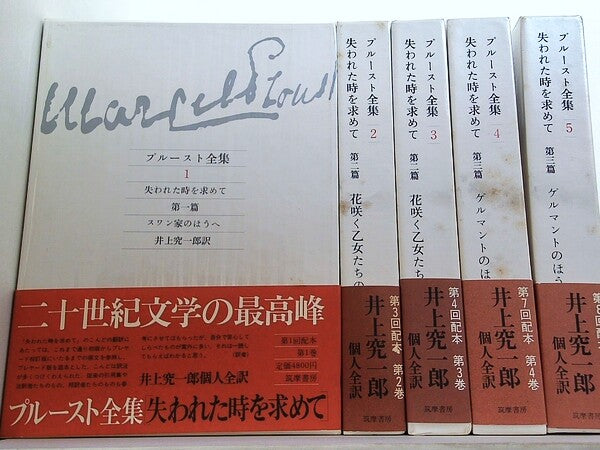 Marcel Proust
プルースト全集
1
失われた時を求めて
第一篇
スワン家のほうへ
井上究一郎訳
二十世紀文学の最高峰
第1回配本
第1巻
定価4800円
筑摩書房
井上究一郎個人全訳
プルースト全集「失われた時を求めて」
プルースト全集 2
失われた時を求めて 第二篇 花咲く乙女たちの
第3回配本 第2巻
井上究一郎
個人全訳
筑摩書房
プルースト全集 3
失われた時を求めて 第二篇 花咲く乙女たちの
第4回配本 第3巻
井上究一郎
個人全訳
筑摩書房
プルースト全集 4
失われた時を求めて 第三篇 ゲルマントのほ
第7回配本 第4巻
井上究一郎
個人全訳
筑摩書房
プルースト全集 5
失われた時を求めて 第三篇 ゲルマントのほう
井上究一郎
個人全訳
筑摩書房